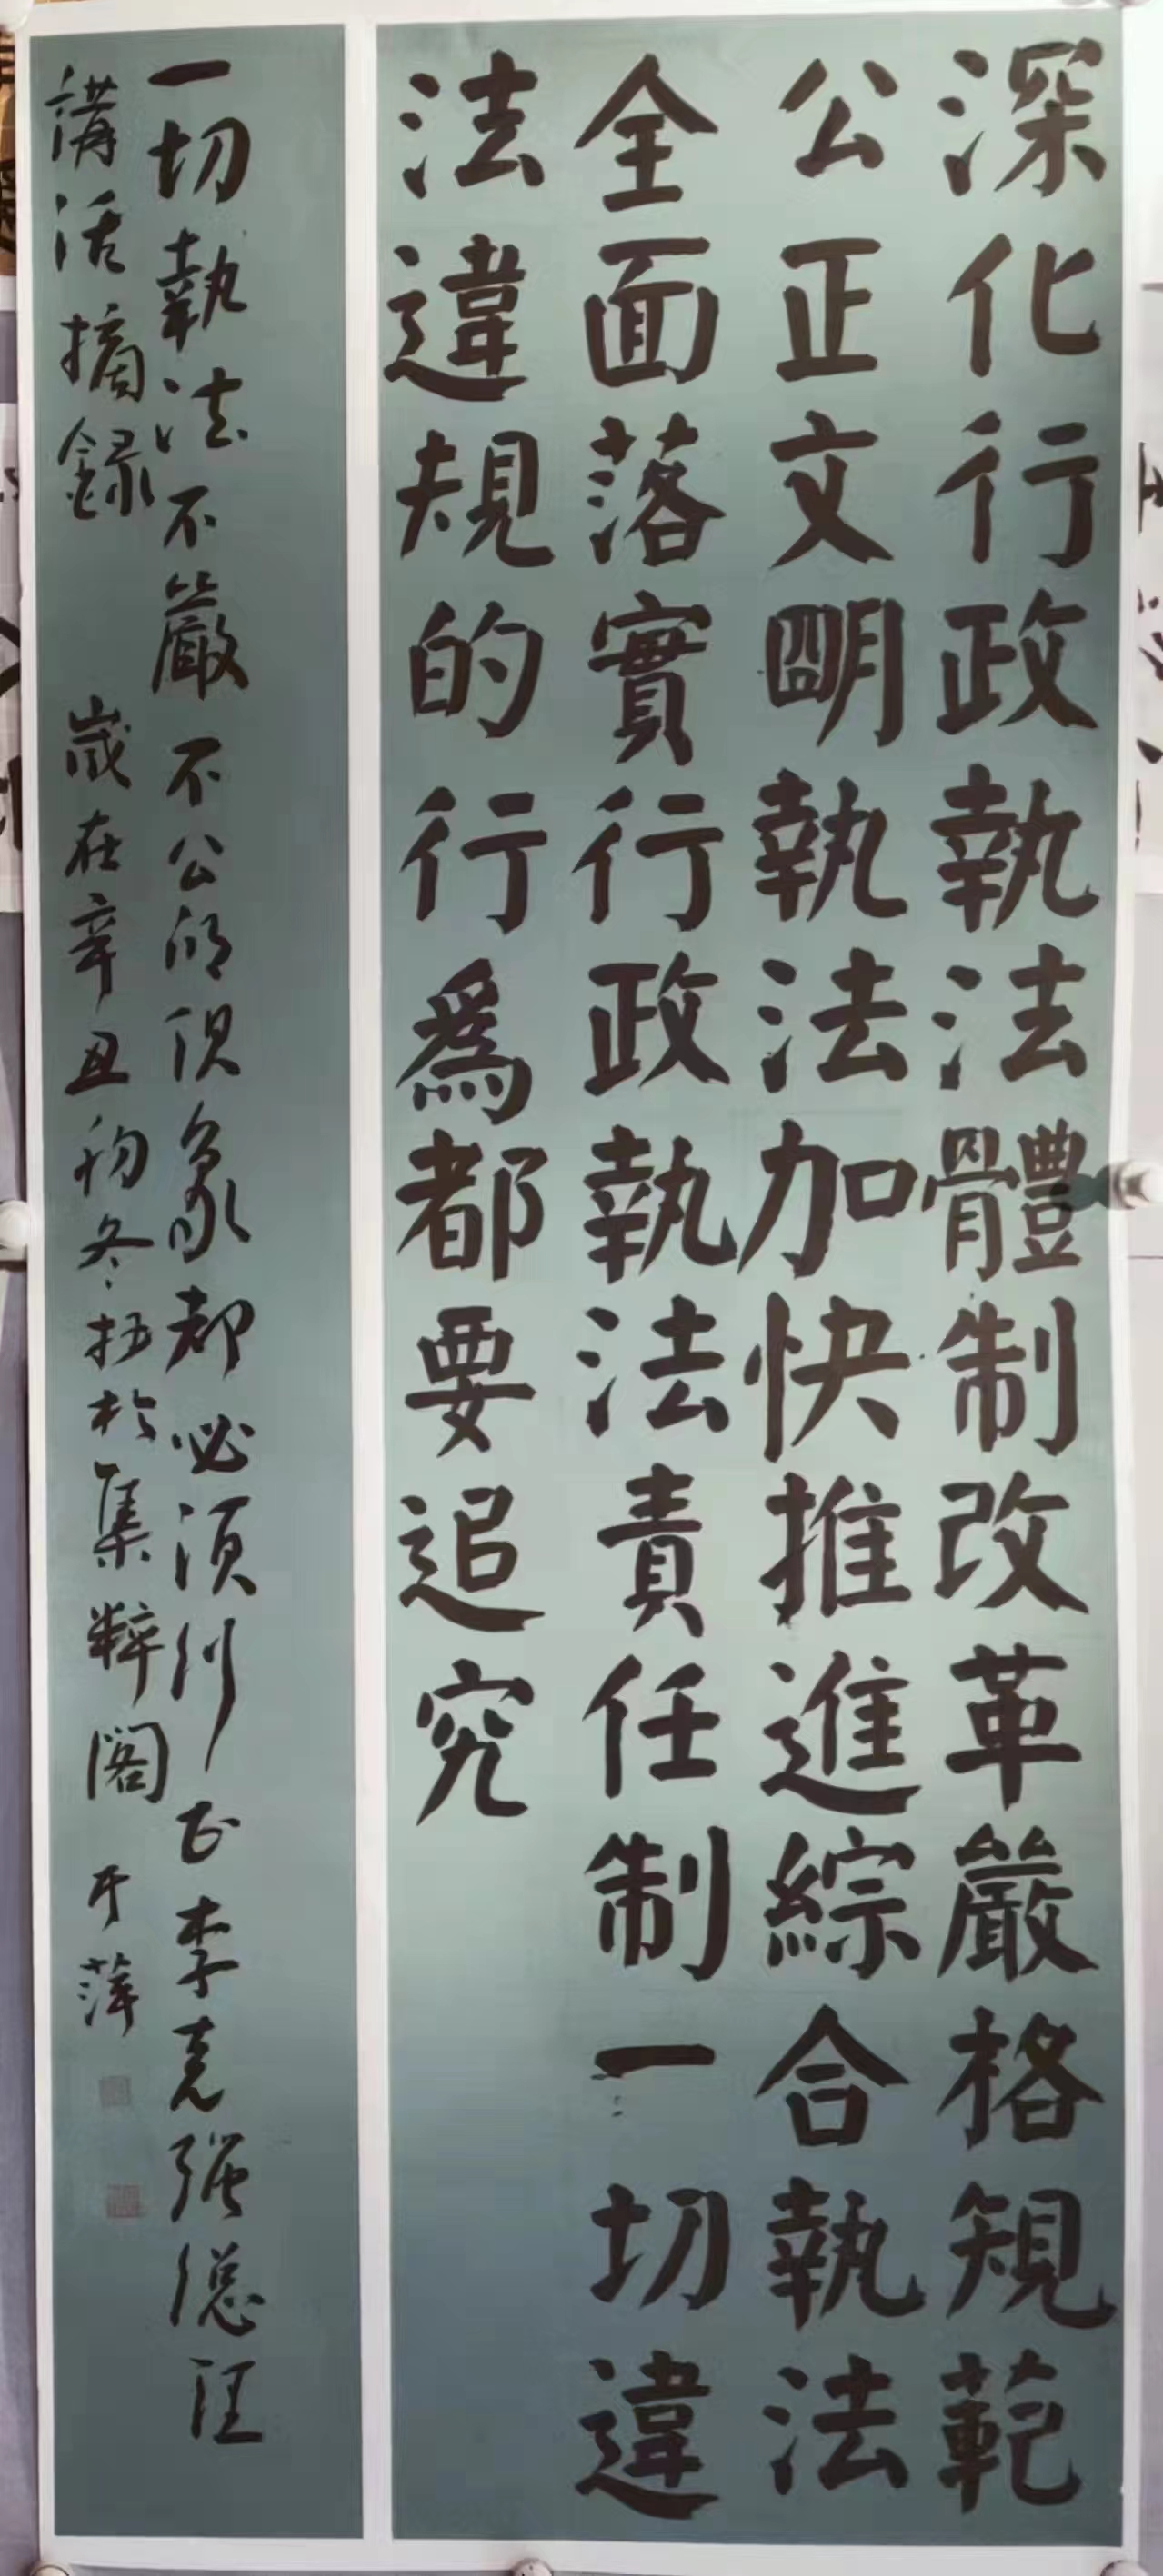 深化行政執法體制改革嚴格規範
公正文明執法加快推進綜合執法
全面落實行政執法責任制一切違
法違規的行為都要追究
一切執法不嚴不公的現象都必須糾正李克强總理
講話摘録 歲在辛丑初冬於集粹閣 于萍